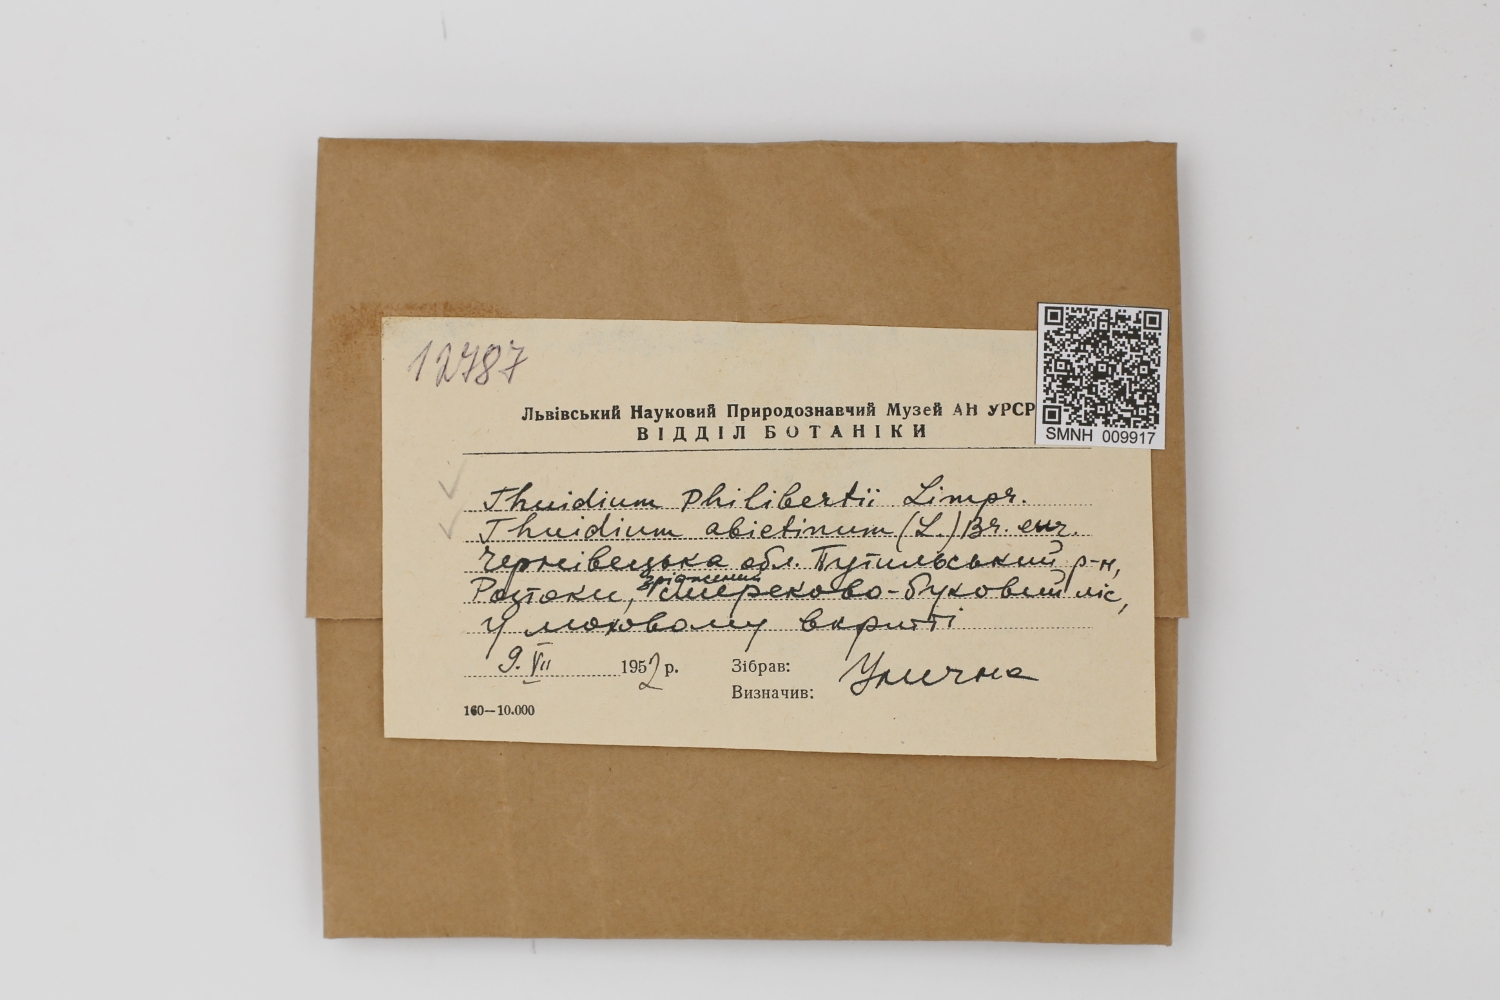 12787
Львівський Науковий Природознавчий Музей АН УРСР
ВІДДІЛ БОТАНІКИ
SMNH 009917
Thuidium Philibertii Limpr.
Thuidium abietinum (L.) Br. eur.
Чернівецька обл. Путильський р-н,
зріджений
Розтоки, смереково-буковий ліс,
у моховому вкритті
9.VII 1952 р. Зібрав: Улична
Визначив:
160—10.000